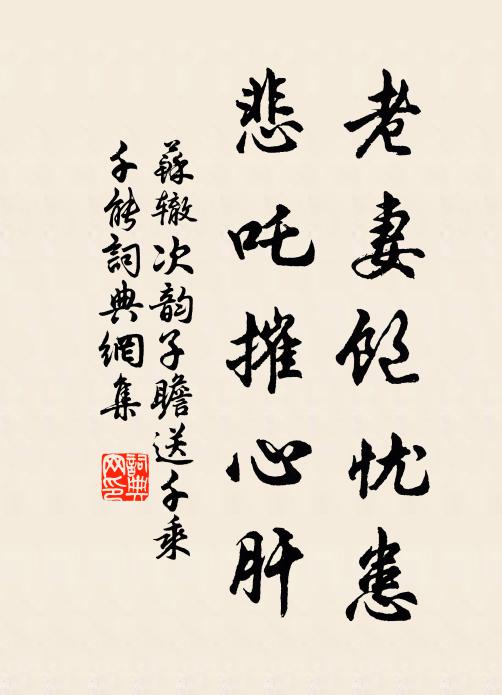 老妻饱忧患
悲吒摧心肝
蘇辙次韵子瞻送千乘
千能詞典網集
詞典
网印